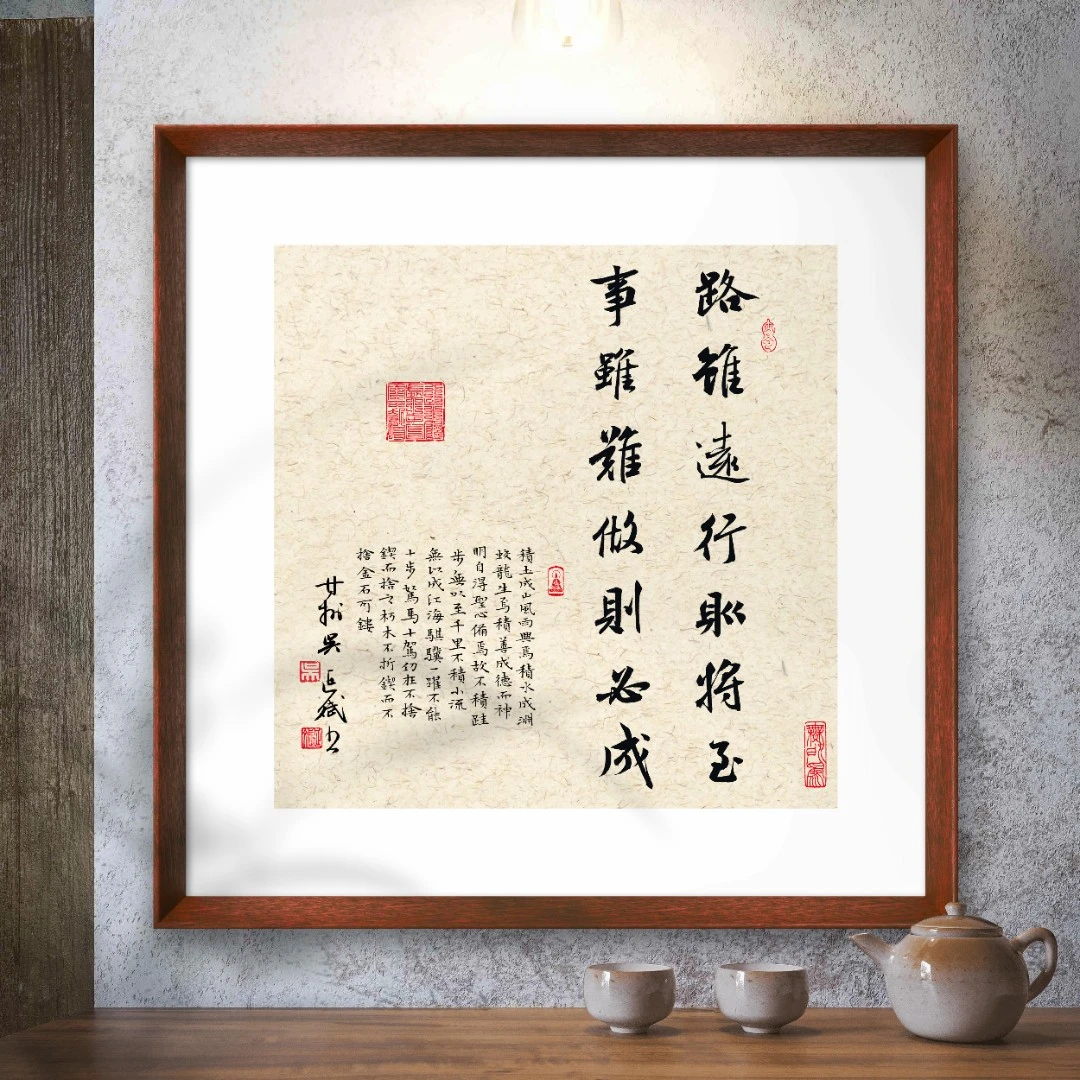 路雖遠行則將至
事雖難做則必成
積土成山風雨興焉積水成淵
蛟龍生焉積善成德而神
明自得聖心備焉故不積跬
步無以至千里不積小流
無以成江海騏驥一躍不能
十步駑馬十駕功在不捨
鍥而捨之朽木不折鍥而不
捨金石可鏤
甘州吳正斌书
吳